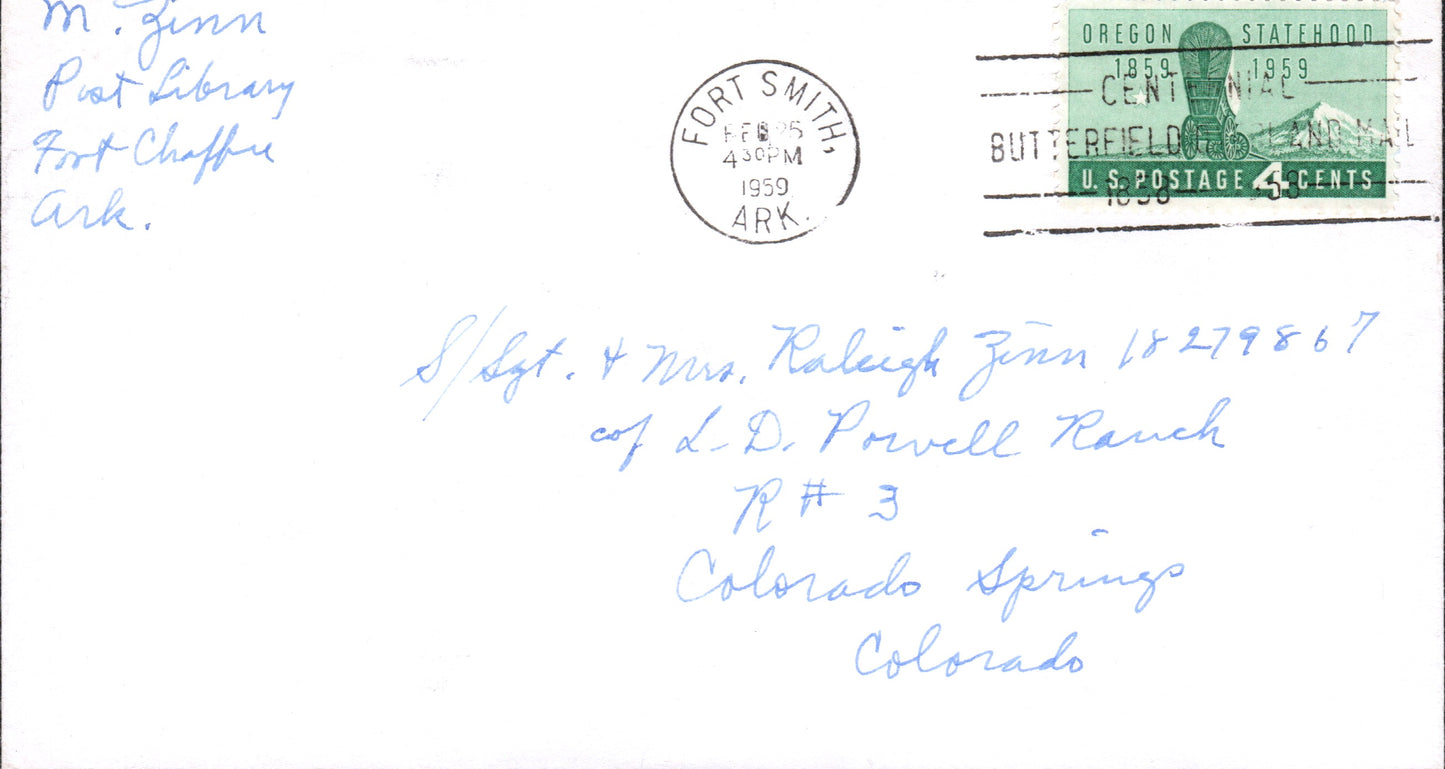 M. Zinn
Post Library
Fort Chaffee
Ark.
FORT SMITH,
FEB 25
4 30 PM
1959
ARK.
OREGON STATEHOOD
1859 1959
CENTENNIAL
BUTTERFIELD OVERLAND MAIL
1858 1958
U.S. POSTAGE 4 CENTS
S/Sgt. & Mrs. Raleigh Zinn 18279867
c/o L. D. Powell Ranch
R # 3
Colorado Springs
Colorado